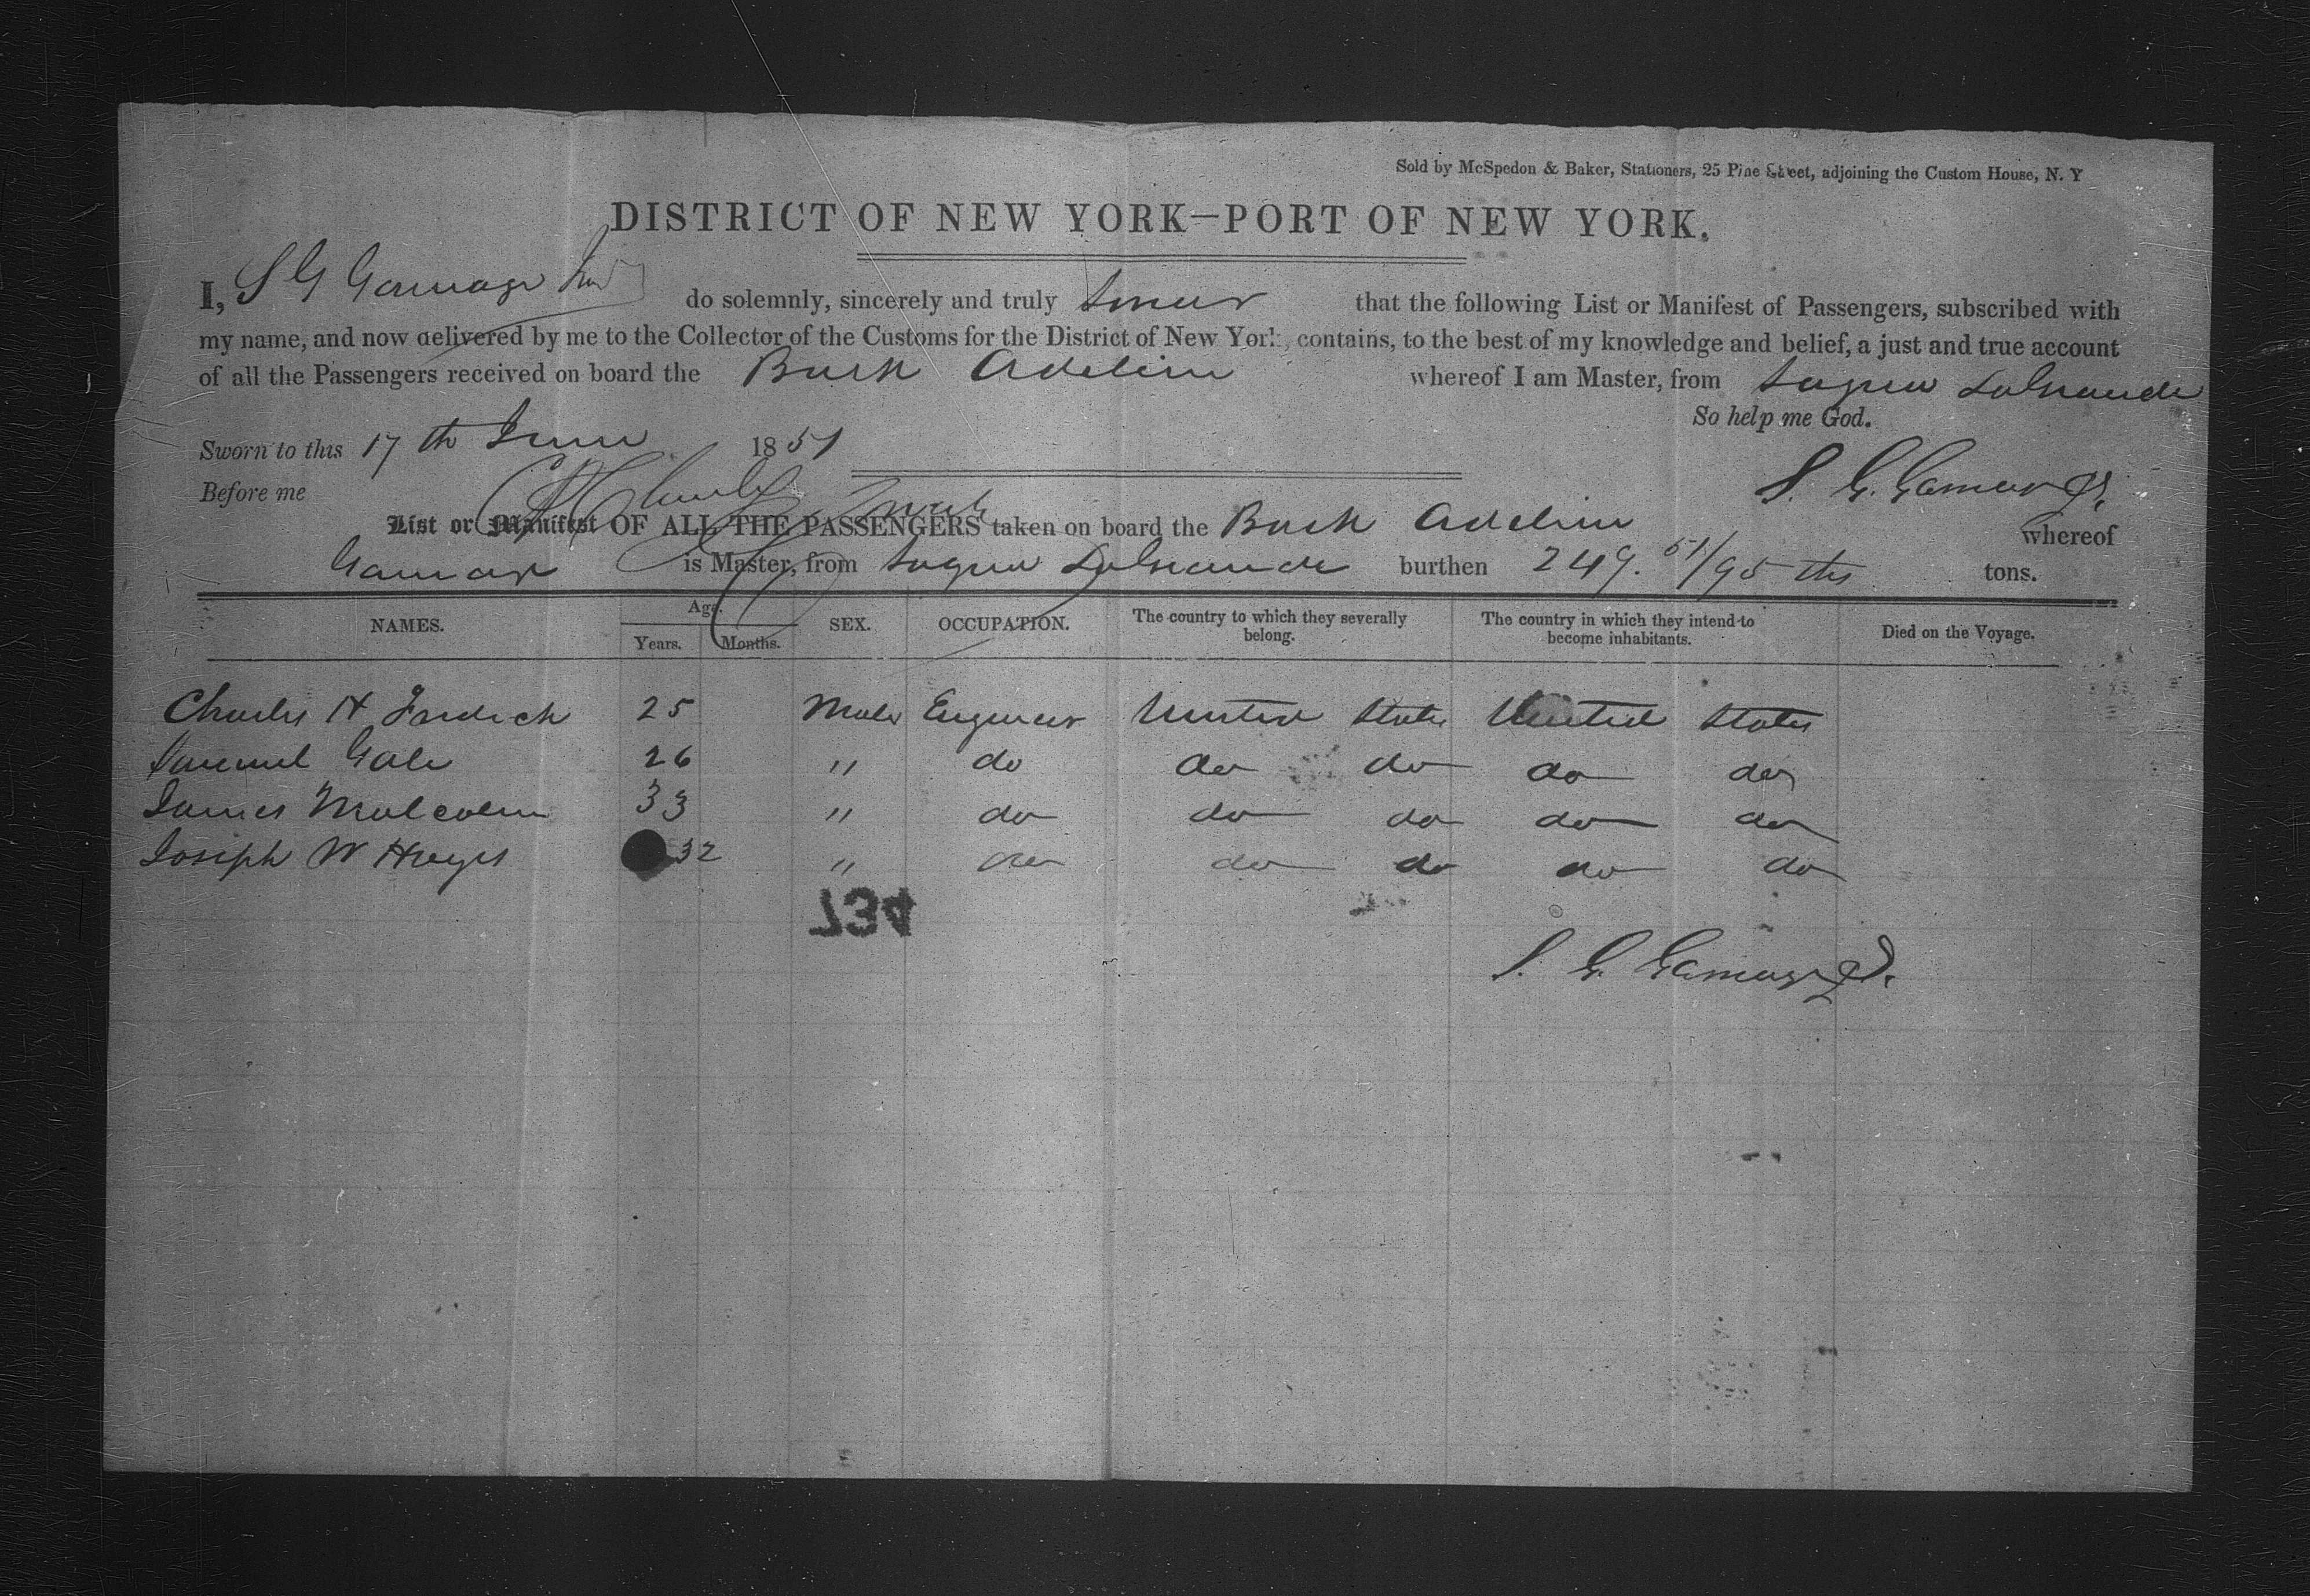 Sold by McSpedon & Baker, Stationers, 25 Pine Street, adjoining the Custom House, N. Y
DISTRICT OF NEW YORK—PORT OF NEW YORK.
I, S G Gamage Jun do solemnly, sincerely and truly swear that the following List or Manifest of Passengers, subscribed with
my name, and now delivered by me to the Collector of the Customs for the District of New York, contains, to the best of my knowledge and belief, a just and true account
of all the Passengers received on board the Bark Adeline whereof I am Master, from Sagua La Grande
So help me God.
Sworn to this 17 th June 1851
Before me S. G. Gamage Jr.
List or Manifest OF ALL THE PASSENGERS taken on board the Bark Adeline whereof
Gamage is Master, from Sagua La Grande burthen 249. 51/95 ths tons.
NAMES. Age. Years. Months. SEX. OCCUPATION. The country to which they severally belong. The country in which they intend to become inhabitants. Died on the Voyage.
Charles H Fredrich 25 Male Engineer United States United States
Samuel Gale 26 " do do do do do
James Malcolm 33 " do do do do do
Joseph W Hayes 32 " do do do do do
734
S. G. Gamage Jr.